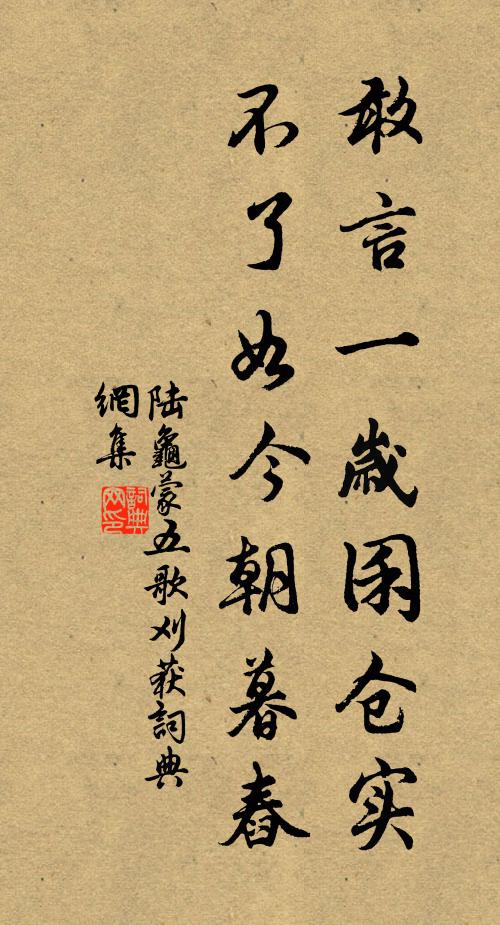 敢言一歲囷仓实
不了如今朝暮舂
陆龜蒙五歌刈获詞典
網集
詞典网印